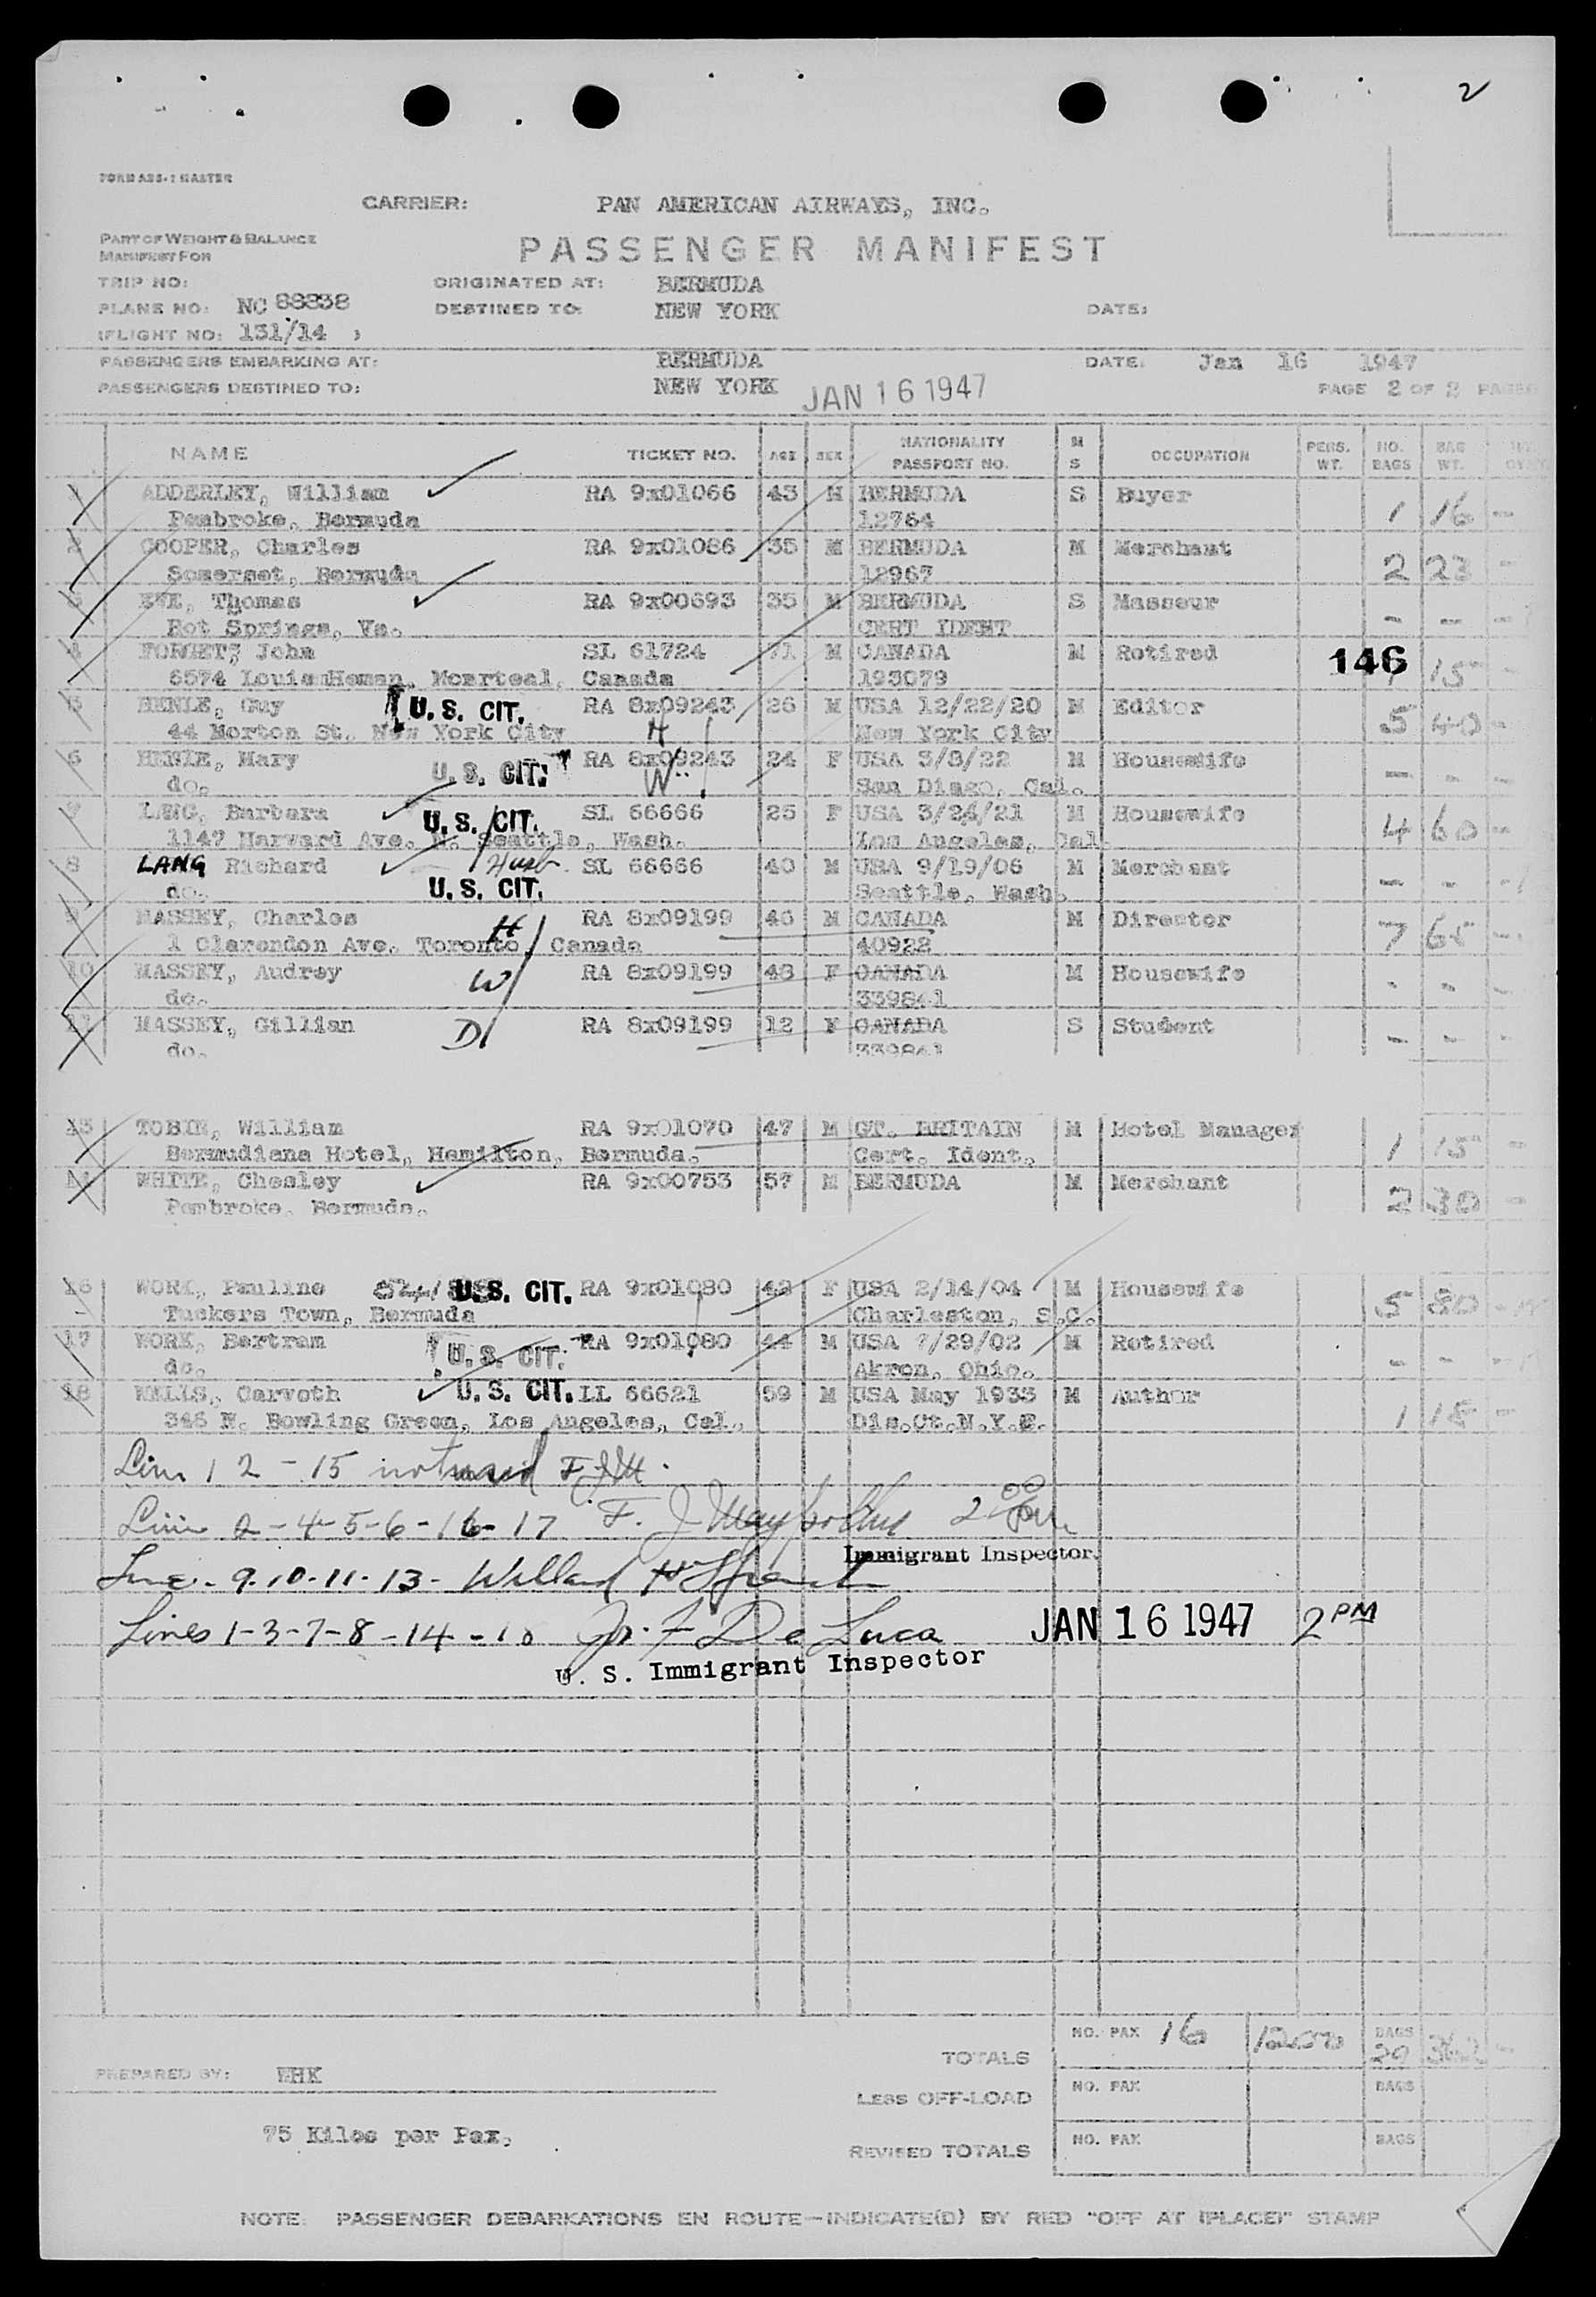 2
FORM ASS-1 MASTER
CARRIER: PAN AMERICAN AIRWAYS, INC.
PART OF WEIGHT & BALANCE
MANIFEST FOR
PASSENGER MANIFEST
TRIP NO: ORIGINATED AT: BERMUDA
PLANE NO: NC 88838 DESTINED TO: NEW YORK DATE:
(FLIGHT NO: 131/14 )
PASSENGERS EMBARKING AT: BERMUDA DATE: Jan 16 1947
PASSENGERS DESTINED TO: NEW YORK JAN 16 1947 PAGE 2 OF 2 PAGES
NAME TICKET NO. AGE SEX NATIONALITY PASSPORT NO. M S OCCUPATION PERS. WT. NO. BAGS BAG WT.
1 ADDERLEY, William RA 9x01066 43 M BERMUDA S Buyer 1 16 -
Pembroke, Bermuda 12764
2 COOPER, Charles RA 9x01086 35 M BERMUDA M Merchant 2 23 -
Somerset, Bermuda 12967
3 EVE, Thomas RA 9x00693 35 M BERMUDA S Masseur - - -
Hot Springs, Va. CERT IDENT
4 John SL 61724 71 M CANADA M Retired 146 1 15 -
6574 Canada 193079
5 HENLE, Guy U. S. CIT. RA 8x09243 26 M USA 12/22/20 M Editor 5 40 -
44 Morton St. New York City H New York City
6 HENLE, Mary U. S. CIT. RA 8x09243 24 F USA 3/3/22 M Housewife - - -
do. W San Diego, Cal.
7 LANG, Barbara U. S. CIT. SL 66666 25 F USA 3/24/21 M Housewife 4 60 -
1147 Harvard Ave. N. Seattle, Wash. Los Angeles, Cal.
8 LANG Richard Husb. SL 66666 40 M USA 9/19/06 M Merchant - - -
do. U. S. CIT. Seattle, Wash.
9 MASSEY, Charles H RA 8x09199 46 M CANADA M Director 7 65 -
1 Clarendon Ave. Toronto, Canada 40922
10 MASSEY, Audrey W RA 8x09199 43 F CANADA M Housewife - - -
do. 339841
11 MASSEY, Gillian D RA 8x09199 12 F CANADA S Student - - -
do. 339841
13 TOBIN, William RA 9x01070 47 M GT. BRITAIN M Hotel Manager 1 15 -
Bermudiana Hotel, Hamilton, Bermuda. Cert. Ident.
14 WHITE, Chesley RA 9x00753 57 M BERMUDA M Merchant 2 30 -
Pembroke, Bermuda.
16 WORK, Pauline U. S. CIT. RA 9x01080 42 F USA 2/14/04 M Housewife 5 80 -
Tuckers Town, Bermuda Charleston, S.C.
17 WORK, Bertram U. S. CIT. RA 9x01080 44 M USA 7/29/02 M Retired - - -
do. Akron, Ohio.
18 WELLS, Carveth U. S. CIT. LL 66621 59 M USA May 1933 M Author 1 18 -
345 N. Bowling Green, Los Angeles, Cal. Dis.Ct.N.Y.E.
Line 12 - 15 not used FJM.
Line 2-4-5-6-16-17 F. J 2:00 Pm
Immigrant Inspector.
Line - 9.10.11.13 - Willard H
Lines 1-3-7-8-14-18 Jo. F De Luca JAN 16 1947 2 PM
U. S. Immigrant Inspector
TOTALS NO. PAX 16 1200 BAGS 29 362 -
PREPARED BY: WHK
LESS OFF-LOAD NO. PAX BAGS
75 Kilos per Pax.
REVISED TOTALS NO. PAX BAGS
NOTE: PASSENGER DEBARKATIONS EN ROUTE—INDICATE(D) BY RED "OFF AT (PLACE)" STAMP